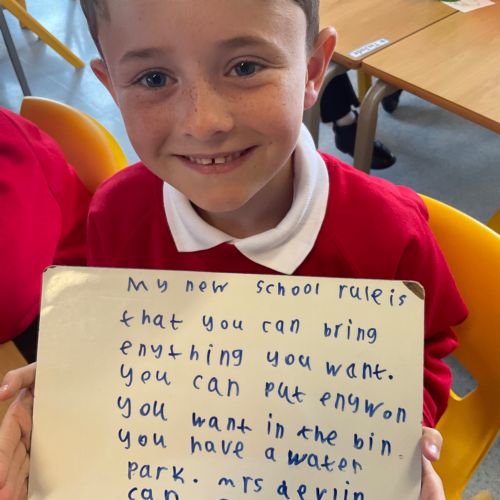 My new school rule is
that you can bring
enything you want.
you can put enywon
you want in the bin.
you have a water
park. mrs devlin
can